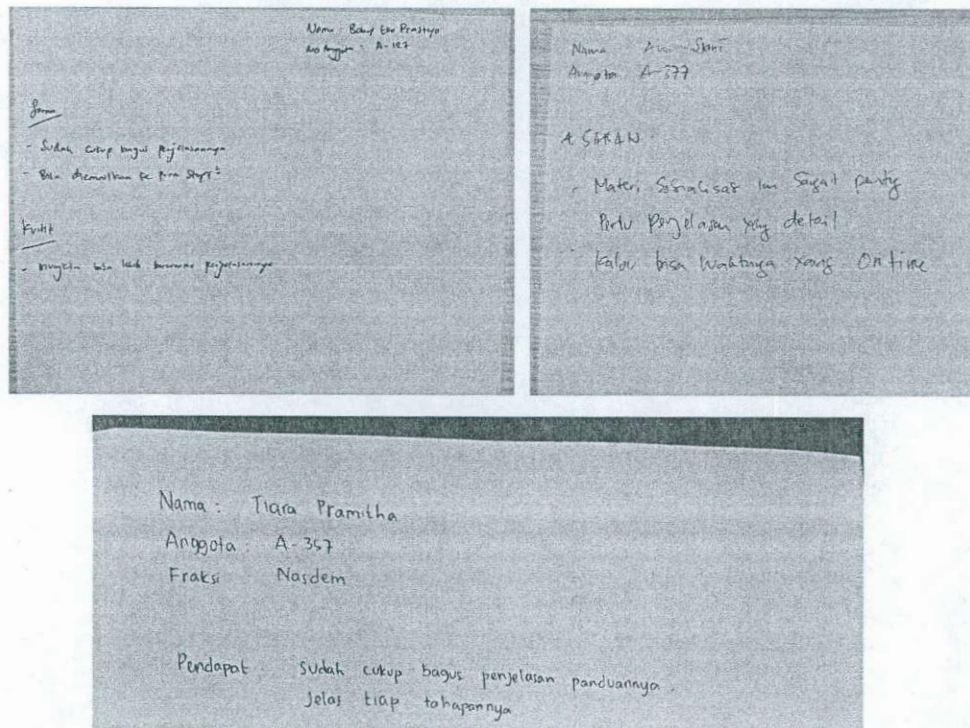 Nama : Eko Prastiyo
No Anggota : A-127
Saran
- Sudah cukup bagus penjelasannya
- Bisa diemailkan ke para Staff²
Kritik
- mungkin bisa lebih penjelasannya
Nama
Anggota A-377
SARAN
- Materi Sosialisasi ini Sangat penting
Perlu Penjelasan yang detail
- Kalau bisa Waktunya yang On time
Nama : Tiara Pramitha
Anggota : A-357
Fraksi Nasdem
Pendapat : Sudah cukup bagus penjelasan panduannya.
Jelas tiap tahapannya